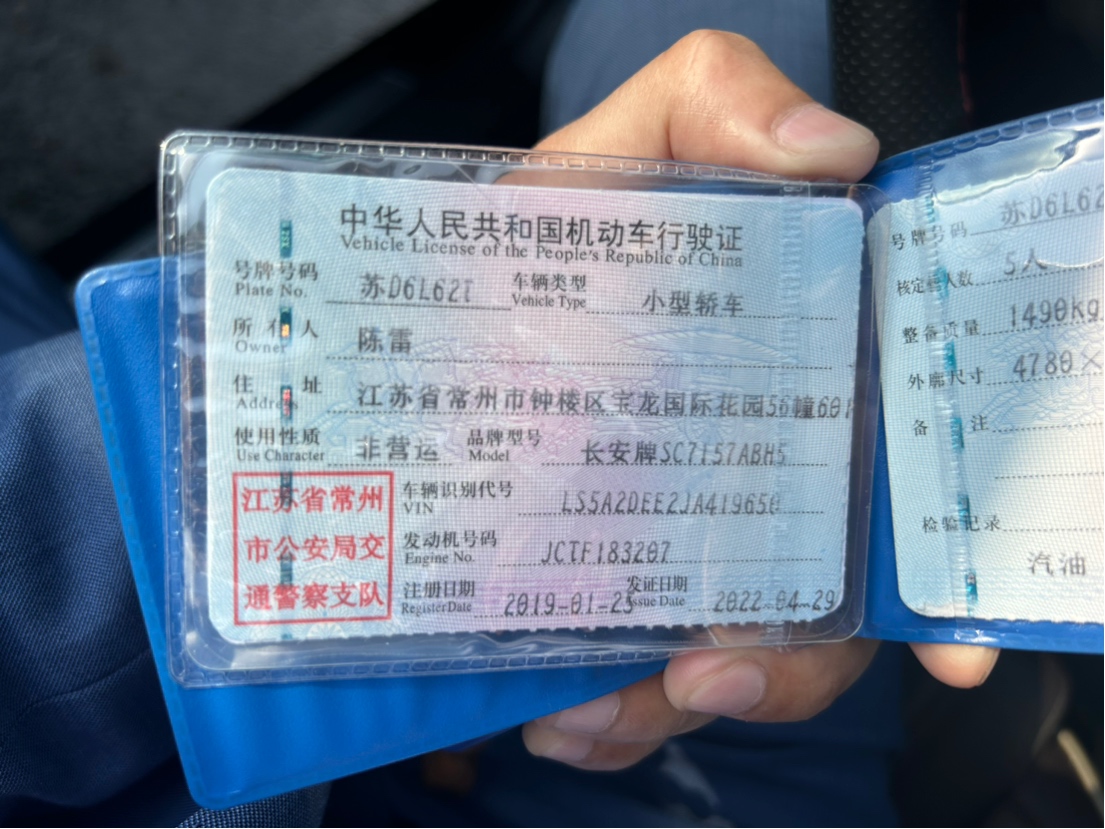 中华人民共和国机动车行驶证
Vehicle License of the People's Republic of China
号牌号码 苏D6L62T 车辆类型 小型轿车
Plate No. Vehicle Type
所有人 陈雷
Owner
住址 江苏省常州市钟楼区宝龙国际花园56幢601
Address
使用性质 非营运 品牌型号 长安牌SC7157ABH5
Use Character Model
江苏省常州 车辆识别代号 LS5A2DEE2JA419650
VIN
市公安局交 发动机号码 JCTF183207
Engine No.
通警察支队 注册日期 2019-01-23 发证日期 2022-04-29
Register Date Issue Date
号牌号码 苏D6L62
核定载人数 5人
整备质量 1490kg
外廓尺寸 4780×
备注
检验记录
汽油